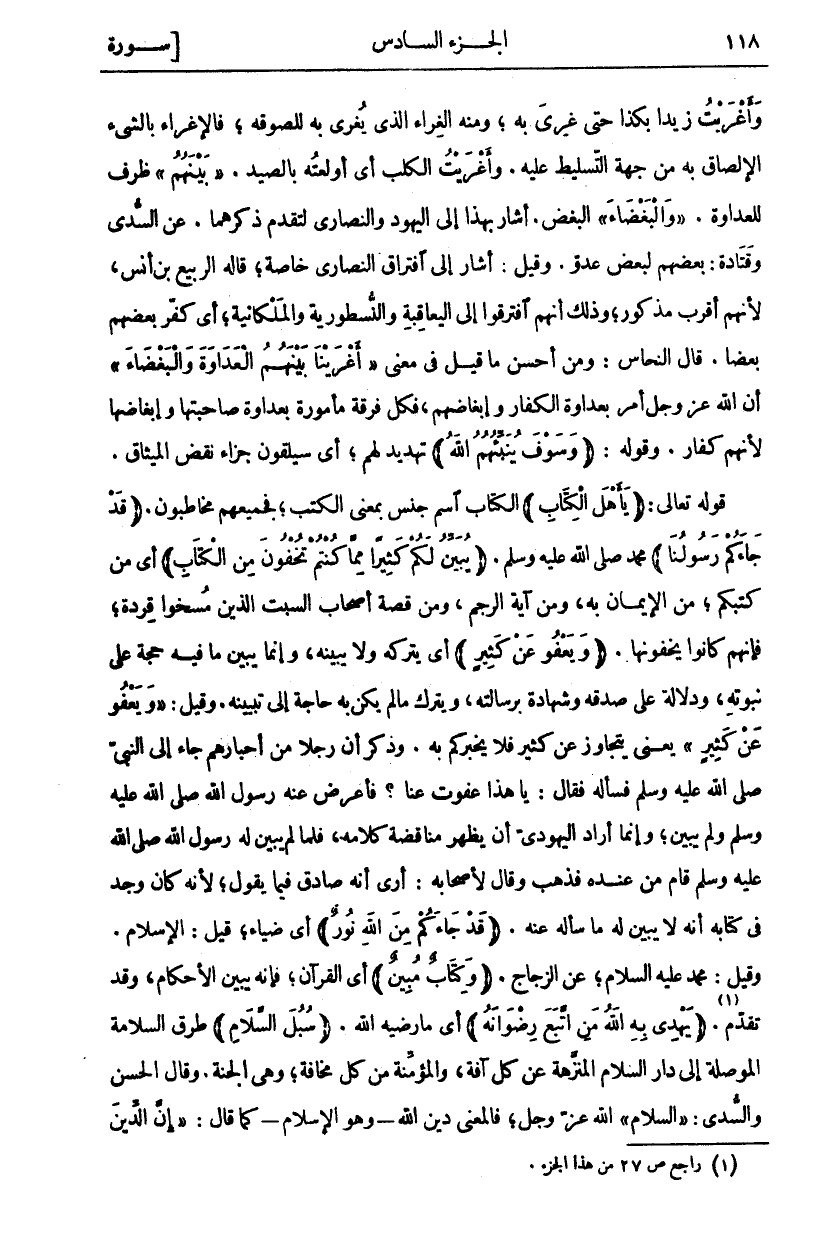 ١١٨ الجزء السادس [سورة
وَأَغْرَيْتُ زيدا بكذا حتى غَرِىَ به ؛ ومنه الغِراء الذى يُغْرى به للصوقه ؛ فالإغراء بالشىء
الإلصاق به من جهة التّسليط عليه . وأَغْرَيْتُ الكلب أى أولعتُه بالصيد . « بَيْنَهُمُ » ظرف
للعداوة . «وَالْبَغْضَاءَ» البغض . أشار بهذا إلى اليهود والنصارى لتقدم ذكرهما . عن السُّدى
وقَتَادة : بعضهم لبعض عدوّ . وقيل : أشار إلى ٱفتراق النصارى خاصة ؛ قاله الربيع بن أنس ،
لأنهم أقرب مذكور ؛ وذلك أنهم ٱفترقوا إلى اليعاقبة والنُّسطورية والمَلْكانية ؛ أى كفّر بعضهم
بعضا . قال النحاس : ومن أحسن ما قيل فى معنى « أَغْرَيْنَا بَيْنَهُمُ الْعَدَاوَةَ وَالْبَغْضَاءَ »
أن الله عز وجل أمر بعداوة الكفار وإبغاضهم ، فكل فرقة مأمورة بعداوة صاحبتها وإبغاضها
لأنهم كفار . وقوله : ﴿ وَسَوْفَ يُنَبِّئُهُمُ اللهُ ﴾ تهديد لهم ؛ أى سيلقون جزاء نقض الميثاق .
قوله تعالى : ﴿ يَأَهْلَ الْكِتَابِ ﴾ الكتاب ٱسم جنس بمعنى الكتب ؛ فجميعهم مخاطبون . ﴿ قَدْ
جَاءَكُمْ رَسُولُنَا ﴾ محمد صلى الله عليه وسلم . ﴿ يُبَيِّنُ لَكُمْ كَثِيرًا مِمَّا كُنْتُمْ تُخْفُونَ مِنَ الْكِتَابِ ﴾ أى من
كتبكم ؛ من الإيمان به ، ومن آية الرجم ، ومن قصة أصحاب السبت الذين مُسخوا قِردة ؛
فإنهم كانوا يخفونها . ﴿ وَيَعْفُو عَنْ كَثِيرٍ ﴾ أى يتركه ولا يبينه ، وإنما يبين ما فيه حجة على
نبوّته ، ودلالة على صدقه وشهادة برسالته ، ويترك مالم يكن به حاجة إلى تبيينه . وقيل : «وَيَعْفُو
عَنْ كَثِيرٍ » يعنى يتجاوز عن كثير فلا يخبركم به . وذكر أن رجلا من أحبارهم جاء إلى النبىّ
صلى الله عليه وسلم فسأله فقال : يا هذا عفوت عنا ؟ فأعرض عنه رسول الله صلى الله عليه
وسلم ولم يبين ؛ وإنما أراد اليهودىّ أن يظهر مناقضة كلامه ، فلما لم يبين له رسول الله صلى الله
عليه وسلم قام من عنده فذهب وقال لأصحابه : أرى أنه صادق فيما يقول ؛ لأنه كان وجد
فى كتابه أنه لا يبين له ما سأله عنه . ﴿ قَدْ جَاءَكُمْ مِنَ اللهِ نُورٌ ﴾ أى ضياء ؛ قيل : الإسلام .
وقيل : محمد عليه السلام ؛ عن الزجاج . ﴿ وَكِتَابٌ مُبِينٌ ﴾ أى القرآن ؛ فإنه يبين الأحكام ، وقد
تقدّم (١) . ﴿ يَهْدِى بِهِ اللهُ مَنِ ٱتَّبَعَ رِضْوَانَهُ ﴾ أى مارضيه الله . ﴿ سُبُلَ السَّلَامِ ﴾ طرق السلامة
الموصلة إلى دار السلام المنزّهة عن كل آفة ، والمؤمّنة من كل مخافة ؛ وهى الجنة . وقال الحسن
والسُّدى : «السلام» الله عزّ وجل ؛ فالمعنى دين الله – وهو الإسلام – كما قال : « إِنَّ الدِّينَ
(١) راجع ص ٢٧ من هذا الجزء .